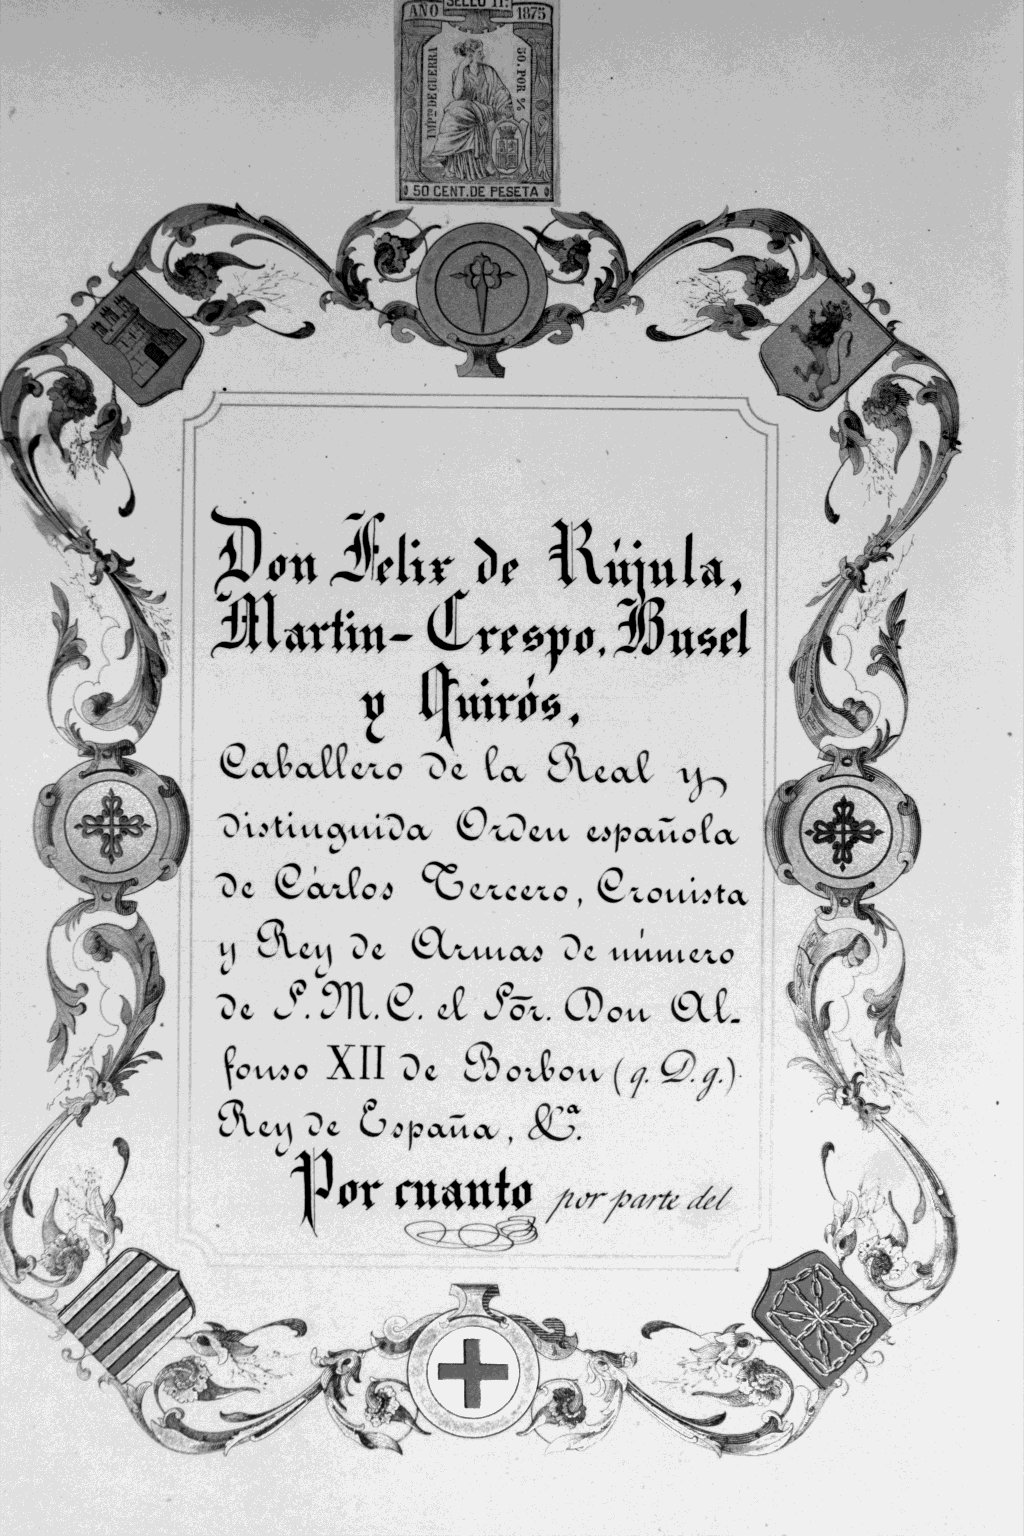 SELLO 11º
AÑO 1875
IMP.to DE GUERRA
50. POR %
50 CENT. DE PESETA
Don Felix de Rújula,
Martin-Crespo, Busel
y Quirós,
Caballero de la Real y
distinguida Orden española
de Cárlos Tercero, Cronista
y Rey de Armas de número
de S. M. C. el Sõr. Don Al-
fonso XII de Borbon (q. D. g.)
Rey de España, &ª.
Por cuanto por parte del